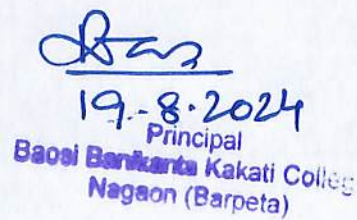 19-8-2024
Principal
Baosi Banikanta Kakati College
Nagaon (Barpeta)